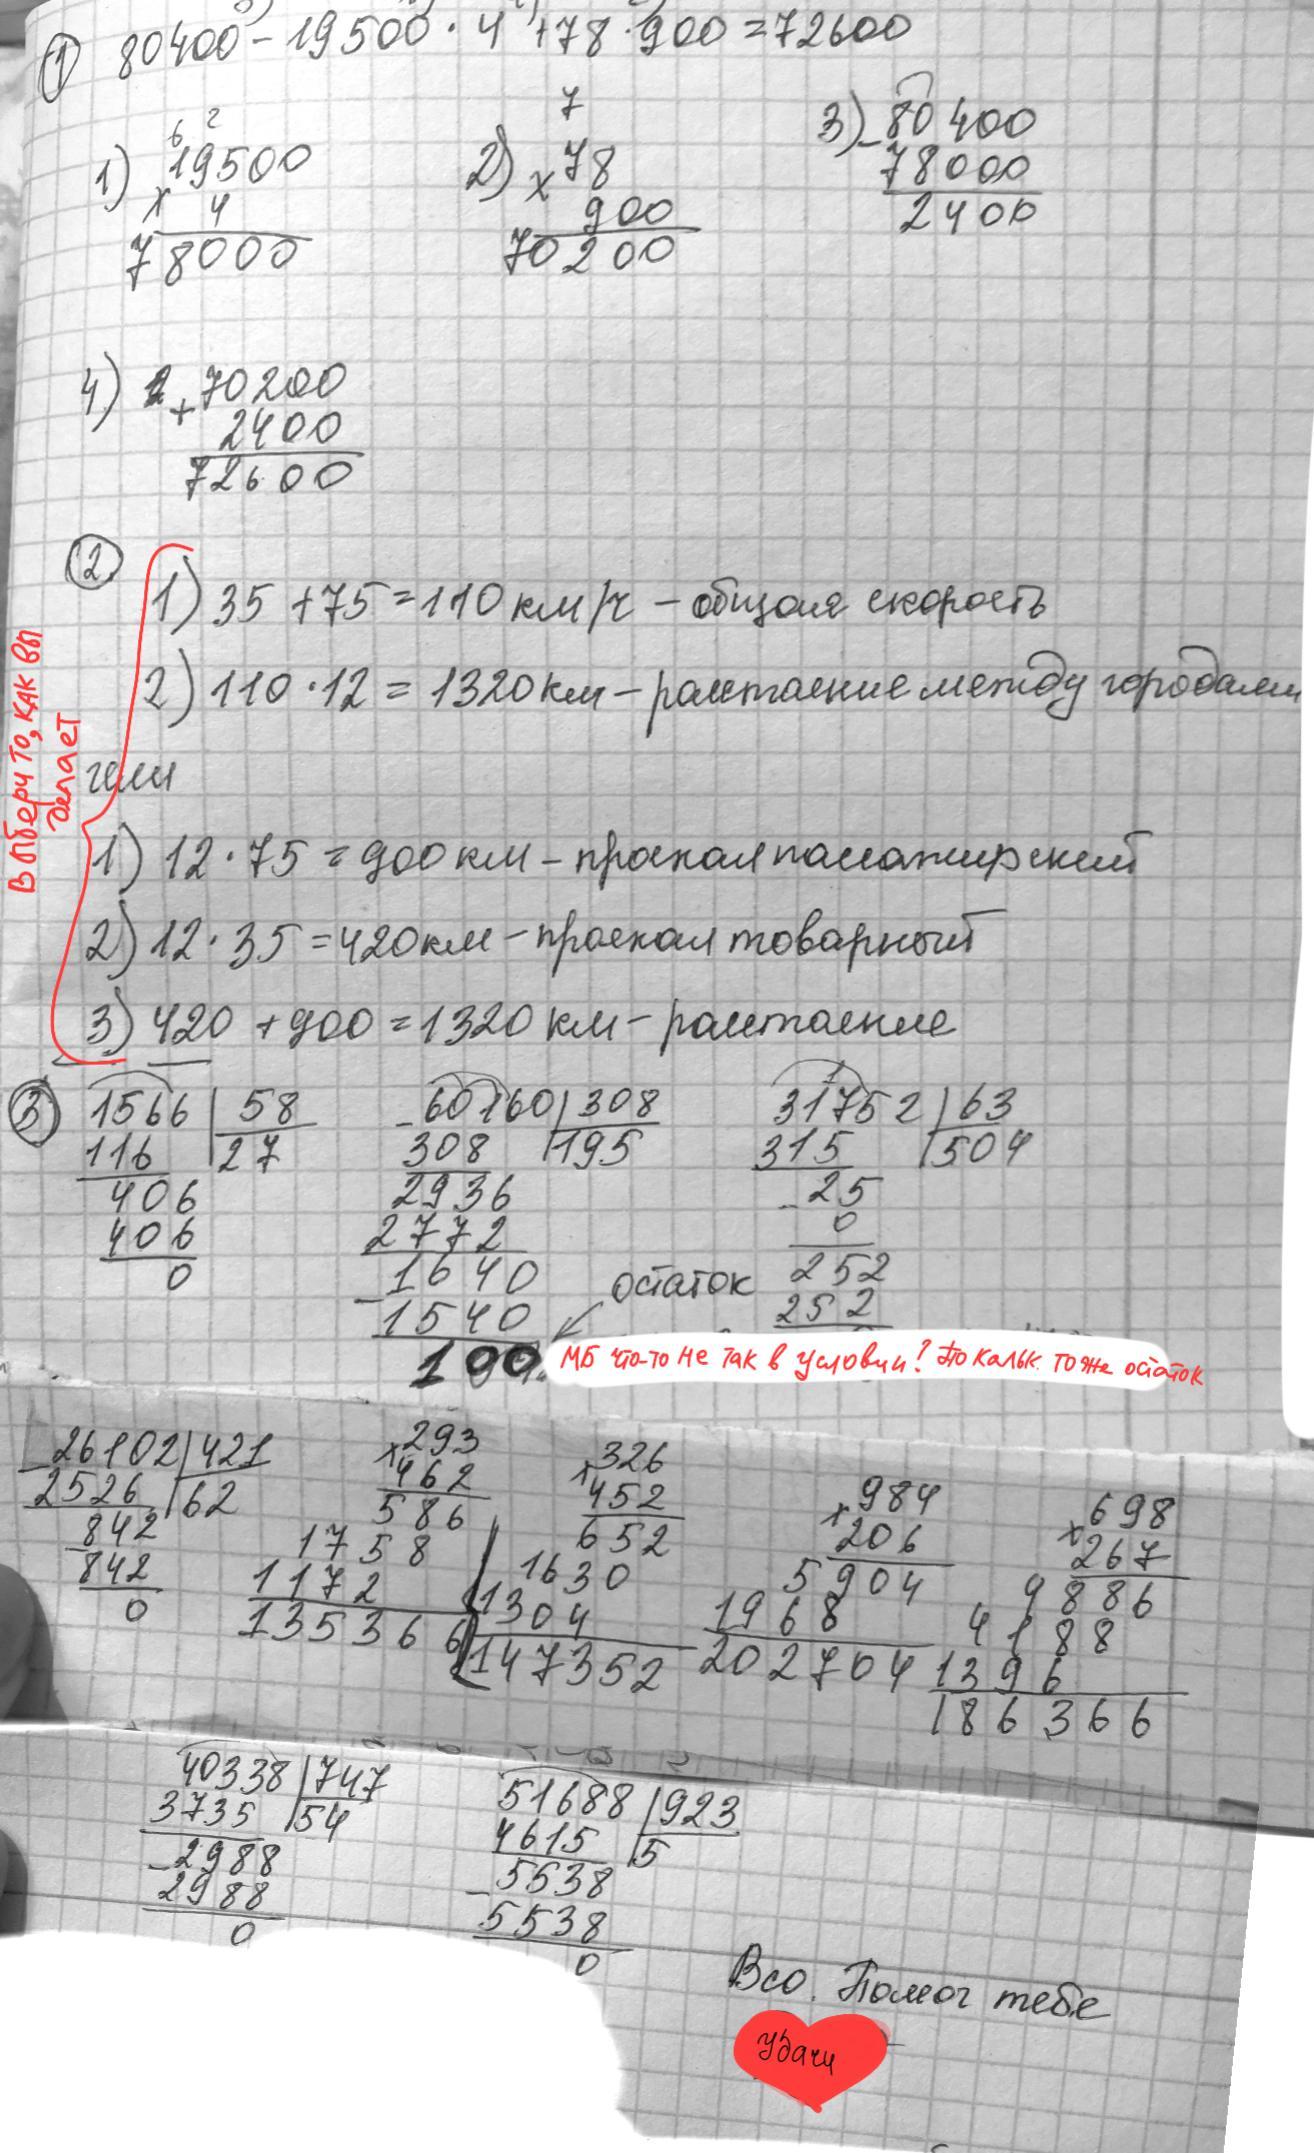 ① 80400 - 19500 · 4 + 78 · 900 = 72600
6 2
1) 19500
x 4
78000
7
2) x 78
900
70200
3) - 80400
78000
2400
4) + 70200
2400
72600
②
1) 35 + 75 = 110 км/ч - общая скорость
2) 110 · 12 = 1320 км - расстояние между городами
или
1) 12 · 75 = 900 км - проехал пассажирский
2) 12 · 35 = 420 км - проехал товарный
3) 420 + 900 = 1320 км - расстояние
Выбери то, как вы
делает
③ 1566 | 58
116 | 27
406
406
0
- 60160 | 308
308 | 195
2936
2772
- 1640
1540
100
остаток
МБ что-то не так в условии? По кальк. тоже остаток
31752 | 63
315 | 504
- 25
0
252
252
- 26102 | 421
2526 | 62
- 842
842
0
x 293
462
586
1758
1172
135366
x 326
452
652
1630
1304
147352
x 984
206
5904
1968
202704
x 698
267
9886
4188
1396
186366
40338 | 747
3735 | 54
- 2988
2988
0
51688 | 923
4615 | 5
- 5538
5538
0
Всо. Помог тебе
Удачи